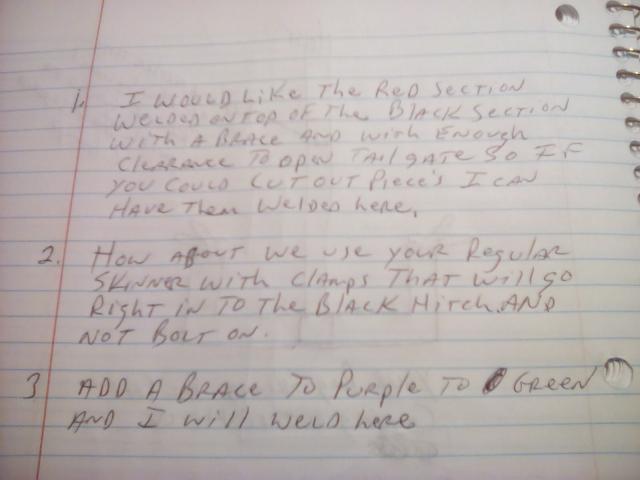 1. I WOULD LIKE THE RED SECTION
WELDED ON TOP OF THE BLACK SECTION
WITH A BRACE AND WITH ENOUGH
CLEARANCE TO OPEN TAILGATE SO IF
YOU COULD CUT OUT PIECE'S I CAN
HAVE THEM WELDED HERE.
2. HOW ABOUT WE USE YOUR REGULAR
SKINNER WITH CLAMPS THAT WILL GO
RIGHT IN TO THE BLACK HITCH AND
NOT BOLT ON.
3 ADD A BRACE TO PURPLE TO GREEN
AND I WILL WELD HERE